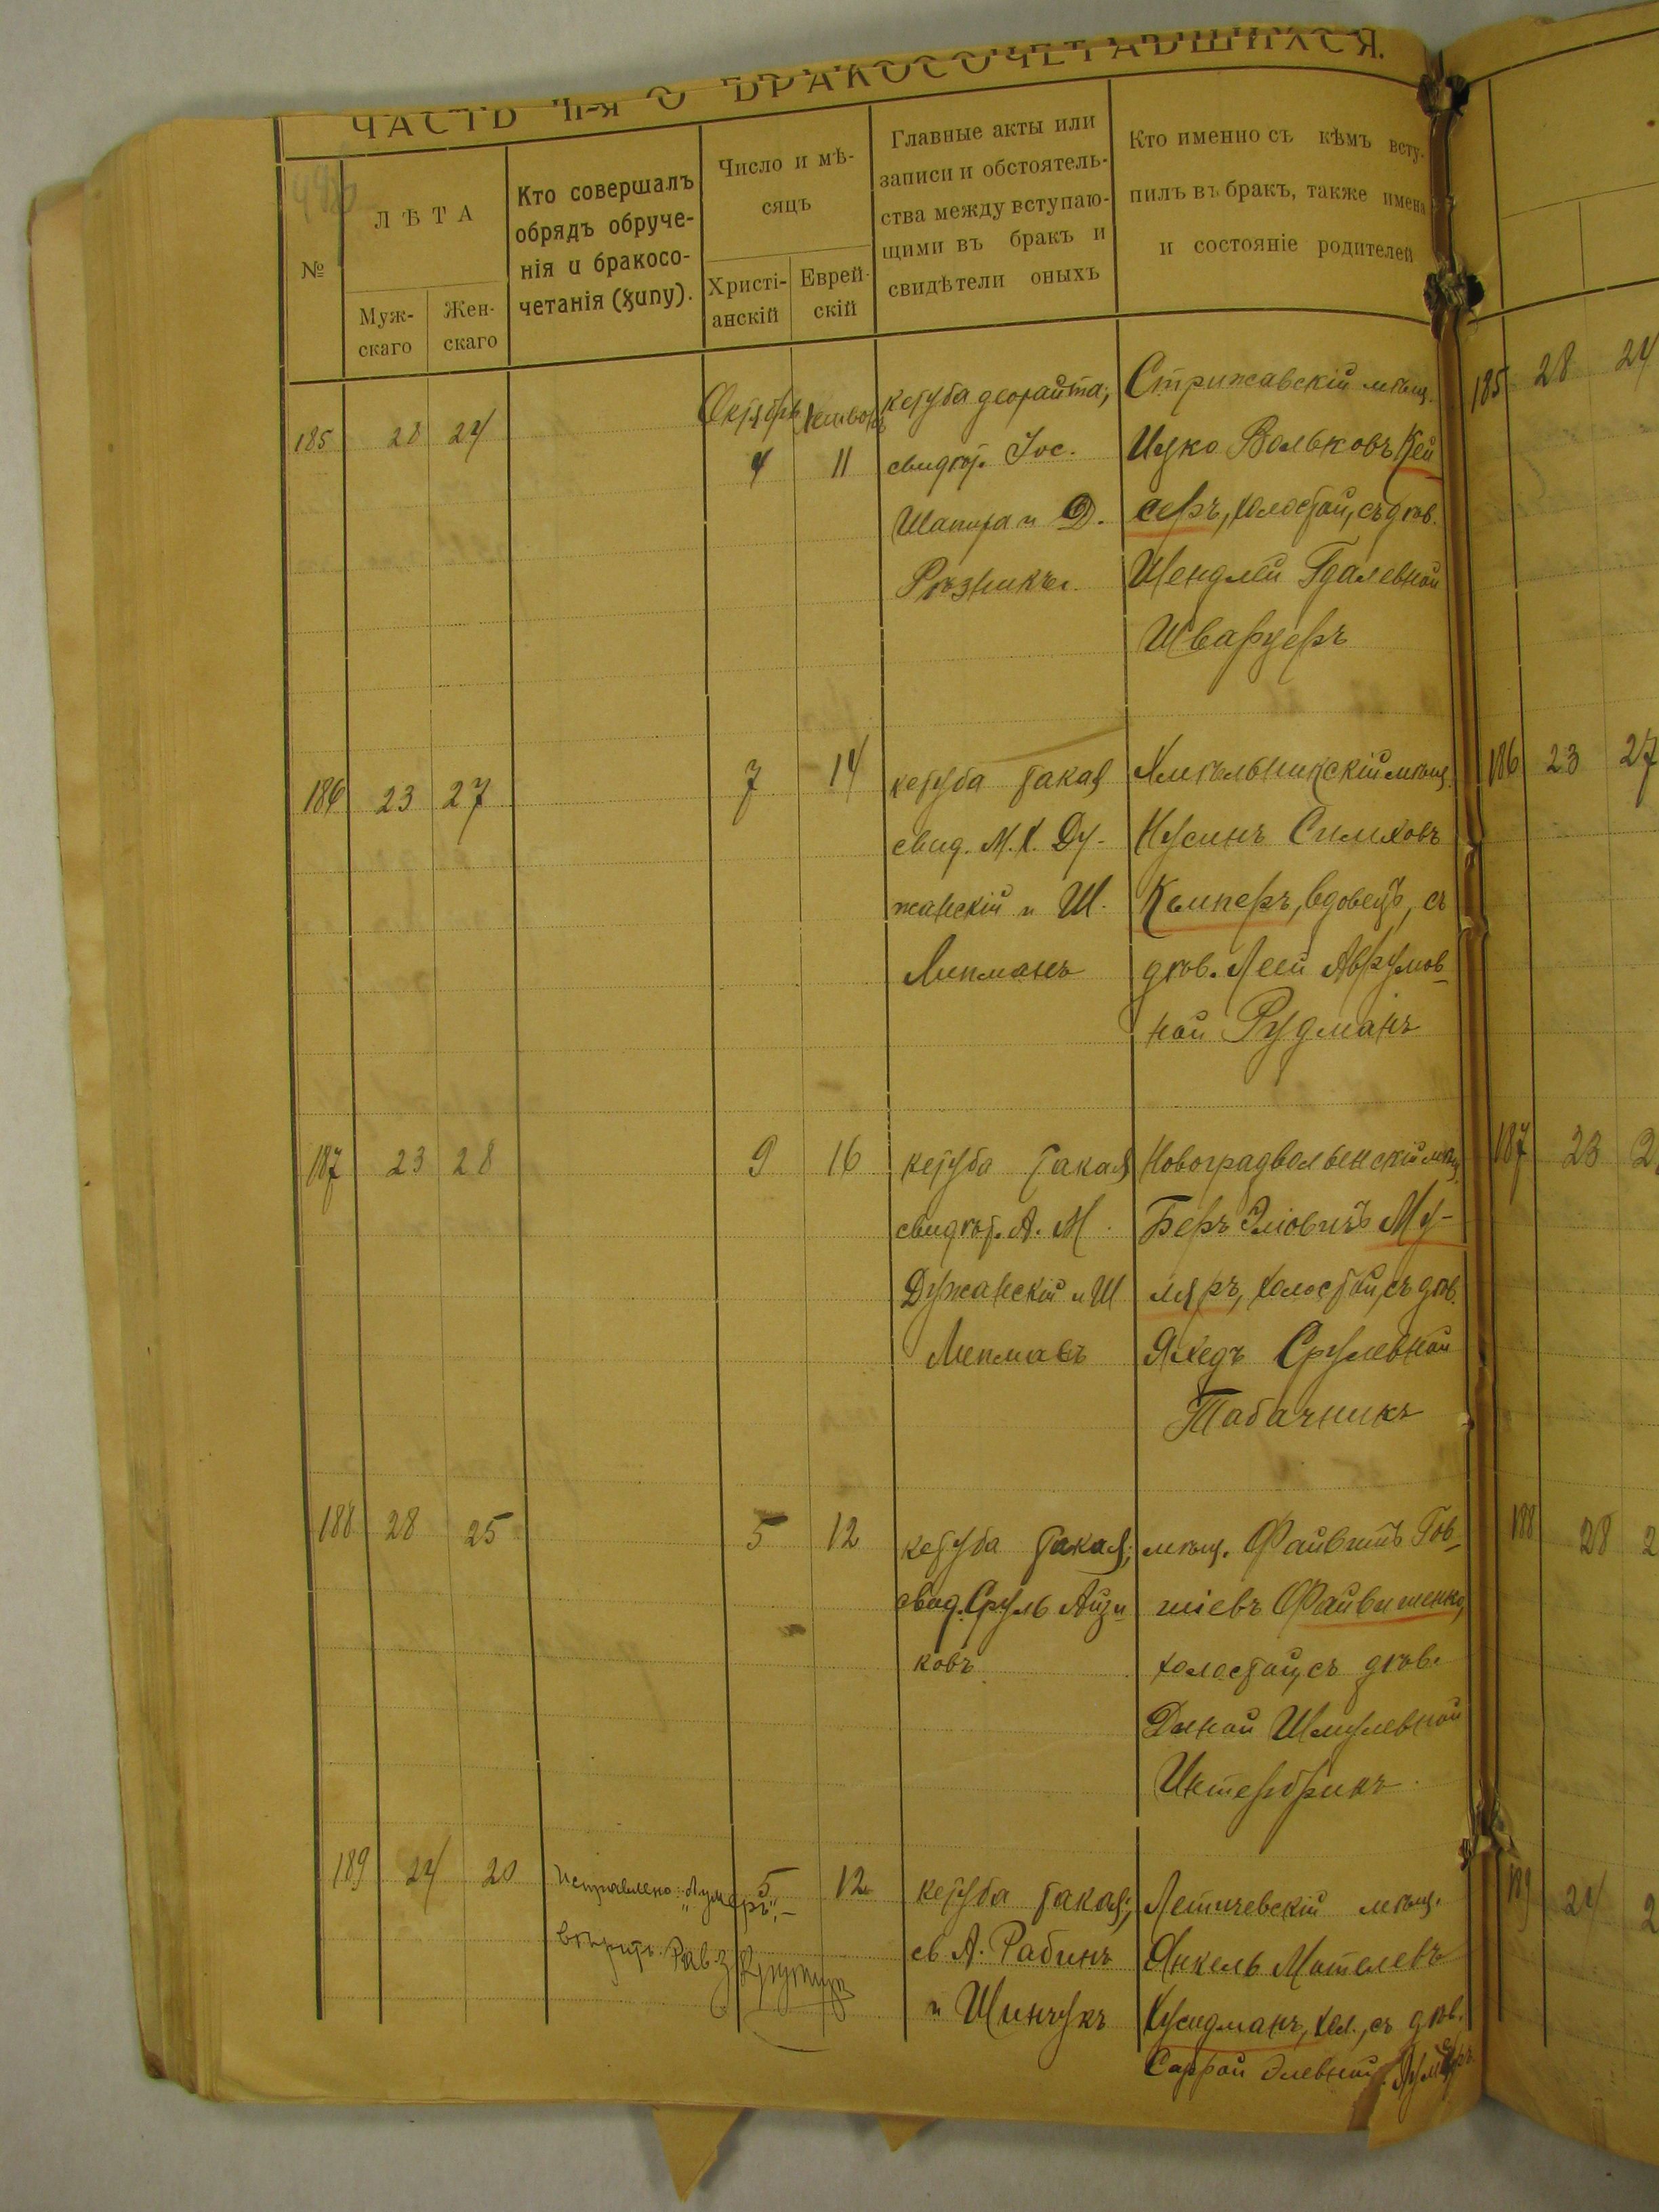 ЧАСТЬ II-я О БРАКОСОЧЕТАВШИХСЯ.
№
ЛѢТА
Муж-
скаго
Жен-
скаго
Кто совершалъ
обрядъ обруче-
нія и бракосо-
четанія (хупу).
Число и мѣ-
сяцъ
Христі-
анскій
Еврей-
скій
Главные акты или
записи и обстоятель-
ства между вступаю-
щими въ бракъ и
свидѣтели оныхъ
Кто именно съ кѣмъ всту-
пилъ въ бракъ, также имена
и состояніе родителей
185 28 24
Октябрь
4 11
кетуба деорайта;
свидѣт. Іос.
Шапира и Д.
Рѣзникъ.
Стрижавскій мѣщ.
Ицко Вольковъ Кей
серъ, холостой, съ дѣв.
Шендлей Гдалевной
Шварцеръ
186 23 27
7 14
кетуба такая
свид. М. Х. Ду-
жанскій и Ш.
Липманъ
Хмѣльникскій мѣщ.
Нусинъ Симховъ
Кемперъ, вдовецъ, съ
дѣв. Леей Аврумов-
ной Рудманъ
187 23 28
9 16
кетуба такая
свидѣт. А. М.
Дужанскій и Ш
Липманъ
Новоградволынскій мѣщ.
Беръ Эліовичъ Му-
ляръ, холостой, съ дѣв.
Яхедъ Срулевной
Табачникъ
188 28 25
5 12
кетуба такая;
свид. Сруль Айзи
ковъ
мѣщ. Файвишъ Гов-
шіевъ Файвишенко,
холостой, съ дѣв.
Даной Шмулевной
Интербрикъ
189 24 20
Исправлено:
вѣрить. Рав.
5 12
кетуба такая;
св. А. Рабинъ
и Шинчукъ
Летичевскій мѣщ.
Янкель Мотелевъ
Хусидманъ, хол., съ дѣв.
Саррой Элевной
185 28 24
186 23 27
187 23
188 28
189 24